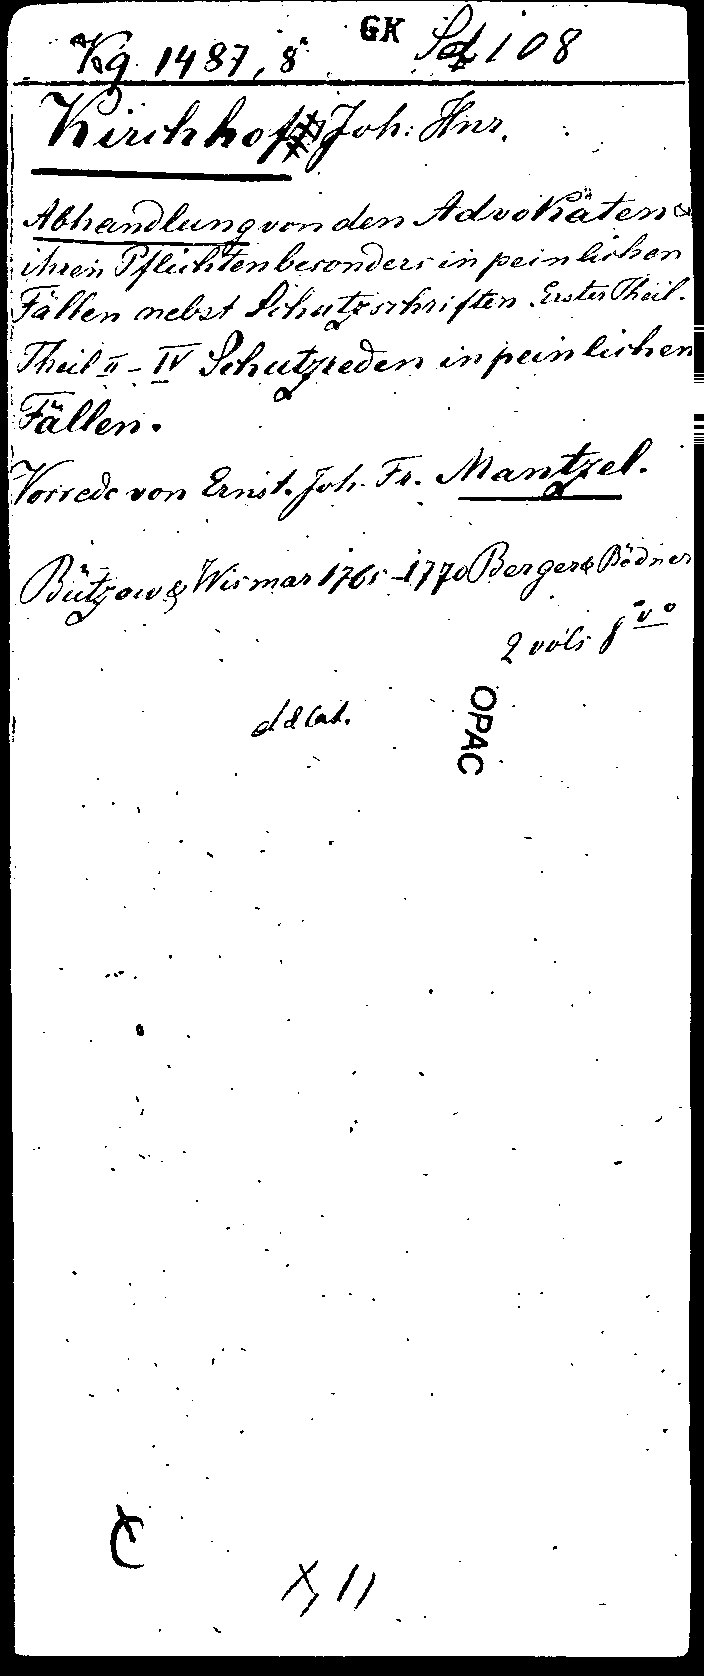 Kg 1487, 8° GK Sel 108
Kirchhof Joh: Hnr.
Abhandlung von den Advokäten &
ihren Pflichten besonders in peinlichen
Fällen nebst Schutzschriften. Erster Theil.
Theil II - IV Schutzreden in peinlichen
Fällen.
Vorrede von Ernst. Joh. Fr. Mantzel.
Bützow & Wismar 1765-1770 Berger & Bödner
2 vols 8vo
OPAC
X, 11